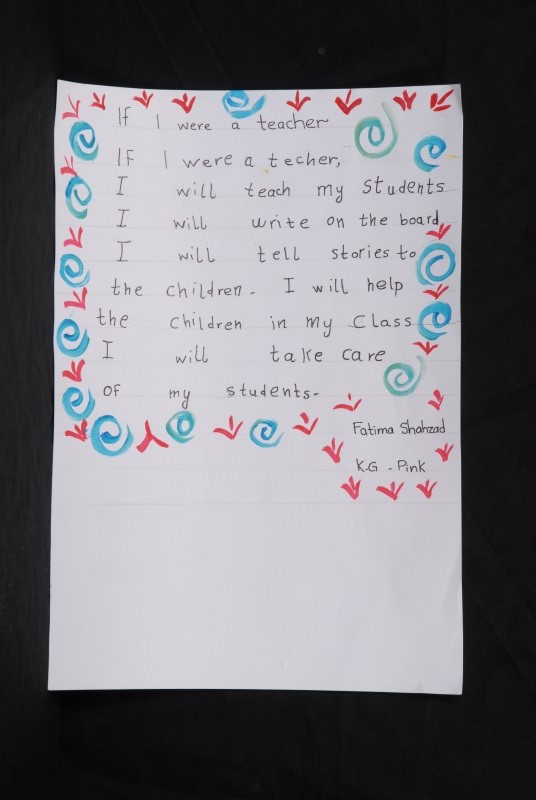 If I were a teacher
IF I were a techer,
I will teach my Students
I will write on the board
I will tell stories to
the children. I will help
the children in my Class
I will take care
of my students.
Fatima Shahzad
K.G - Pink